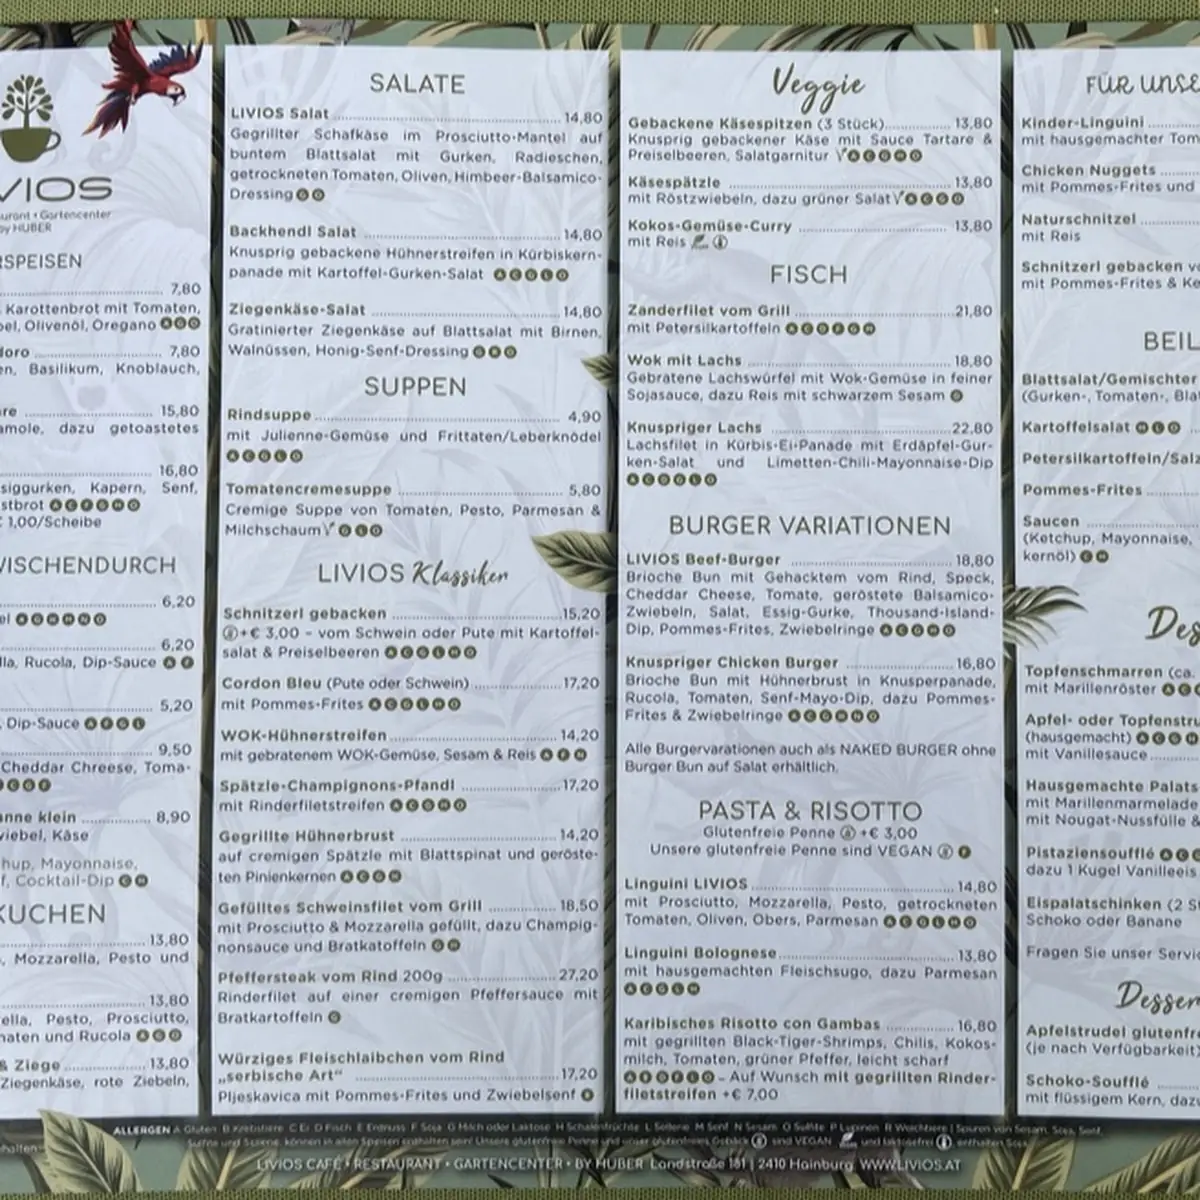 VIOS
Gartencenter
by HUBER
RSPEISEN
7,80
Karottenbrot mit Tomaten,
Olivenöl, Oregano
7,80
Basilikum, Knoblauch,
15,80
dazu getoastetes
16,80
Kapern, Senf,
1,00/Scheibe
WISCHENDURCH
6,20
6,20
Rucola, Dip-Sauce
5,20
Dip-Sauce
9,50
Cheddar Chreese, Toma-
klein 8,90
Käse
Mayonnaise,
Cocktail-Dip
KUCHEN
13,80
Mozzarella, Pesto und
13,80
Pesto, Prosciutto,
und Rucola
& Ziege 13,80
Ziegenkäse, rote Ziebeln,
SALATE
LIVIOS Salat 14,80
Gegrillter Schafkäse im Prosciutto-Mantel auf
buntem Blattsalat mit Gurken, Radieschen,
getrockneten Tomaten, Oliven, Himbeer-Balsamico-
Dressing
Backhendl Salat 14,80
Knusprig gebackene Hühnerstreifen in Kürbiskern-
panade mit Kartoffel-Gurken-Salat
Ziegenkäse-Salat 14,80
Gratinierter Ziegenkäse auf Blattsalat mit Birnen,
Walnüssen, Honig-Senf-Dressing
SUPPEN
Rindsuppe 4,90
mit Julienne-Gemüse und Frittaten/Leberknödel
A C G L O
Tomatencremesuppe 5,80
Cremige Suppe von Tomaten, Pesto, Parmesan &
Milchschaum G L O
LIVIOS Klassiker
Schnitzerl gebacken 15,20
+€ 3,00 – vom Schwein oder Pute mit Kartoffel-
salat & Preiselbeeren A C G L M O
Cordon Bleu (Pute oder Schwein) 17,20
mit Pommes-Frites A C G L M O
WOK-Hühnerstreifen 14,20
mit gebratenem WOK-Gemüse, Sesam & Reis A F N
Spätzle-Champignons-Pfandl 17,20
mit Rinderfiletstreifen A C G M O
Gegrillte Hühnerbrust 14,20
auf cremigen Spätzle mit Blattspinat und geröste-
ten Pinienkernen A C G M
Gefülltes Schweinsfilet vom Grill 18,50
mit Prosciutto & Mozzarella gefüllt, dazu Champig-
nonsauce und Bratkatoffeln G M
Pfeffersteak vom Rind 200g 27,20
Rinderfilet auf einer cremigen Pfeffersauce mit
Bratkartoffeln G
Würziges Fleischlaibchen vom Rind
„serbische Art“ 17,20
Pljeskavica mit Pommes-Frites und Zwiebelsenf
Veggie
Gebackene Käsespitzen (3 Stück) 13,80
Knusprig gebackener Käse mit Sauce Tartare &
Preiselbeeren, Salatgarnitur A C G M O
Käsespätzle 13,80
mit Röstzwiebeln, dazu grüner Salat A C G O
Kokos-Gemüse-Curry 13,80
mit Reis
FISCH
Zanderfilet vom Grill 21,80
mit Petersilkartoffeln
Wok mit Lachs 18,80
Gebratene Lachswürfel mit Wok-Gemüse in feiner
Sojasauce, dazu Reis mit schwarzem Sesam
Knuspriger Lachs 22,80
Lachsfilet in Kürbis-Ei-Panade mit Erdäpfel-Gur-
ken-Salat und Limetten-Chili-Mayonnaise-Dip
BURGER VARIATIONEN
LIVIOS Beef-Burger 18,80
Brioche Bun mit Gehacktem vom Rind, Speck,
Cheddar Cheese, Tomate, geröstete Balsamico-
Zwiebeln, Salat, Essig-Gurke, Thousand-Island-
Dip, Pommes-Frites, Zwiebelringe A C G M O
Knuspriger Chicken Burger 16,80
Brioche Bun mit Hühnerbrust in Knusperpanade,
Rucola, Tomaten, Senf-Mayo-Dip, dazu Pommes-
Frites & Zwiebelringe A C G M N O
Alle Burgervarationen auch als NAKED BURGER ohne
Burger Bun auf Salat erhältlich.
PASTA & RISOTTO
Glutenfreie Penne +€ 3,00
Unsere glutenfreie Penne sind VEGAN F
Linguini LIVIOS 14,80
mit Prosciutto, Mozzarella, Pesto, getrockneten
Tomaten, Oliven, Obers, Parmesan A C G L M O
Linguini Bolognese 13,80
mit hausgemachten Fleischsugo, dazu Parmesan
A C G L M
Karibisches Risotto con Gambas 16,80
mit gegrillten Black-Tiger-Shrimps, Chilis, Kokos-
milch, Tomaten, grüner Pfeffer, leicht scharf
– Auf Wunsch mit gegrillten Rinder-
filetstreifen +€ 7,00
FÜR UNSE
Kinder-Linguini
mit hausgemachter Tom
Chicken Nuggets
mit Pommes-Frites und
Naturschnitzel
mit Reis
Schnitzerl gebacken v
mit Pommes-Frites & Ke
BEIL
Blattsalat/Gemischter
(Gurken-, Tomaten-, Bla
Kartoffelsalat M L O
Petersilkartoffeln/Salz
Pommes-Frites
Saucen
(Ketchup, Mayonnaise,
kernöl) C M
Des
Topfenschmarren (ca.
mit Marillenröster
Apfel- oder Topfenstru
(hausgemacht)
mit Vanillesauce
Hausgemachte Palats
mit Marillenmarmelade
mit Nougat-Nussfülle &
Pistaziensoufflé
dazu 1 Kugel Vanilleeis
Eispalatschinken (2 St
Schoko oder Banane
Fragen Sie unser Servic
Desser
Apfelstrudel glutenfr
(je nach Verfügbarkeit)
Schoko-Soufflé
mit flüssigem Kern, daz
ALLERGEN A Gluten B Krebstiere C Ei D Fisch E Erdnuss F Soja G Milch oder Laktose H Schalenfrüchte L Sellerie M Senf N Sesam O Sulfite P Lupinen R Weichtiere | Spuren von Sesam, Soja, Senf,
sind VEGAN und laktosefrei enthalten Soja
LIVIOS CAFÉ • RESTAURANT • GARTENCENTER • BY HUBER Landstraße 181 | 2410 Hainburg WWW.LIVIOS.AT